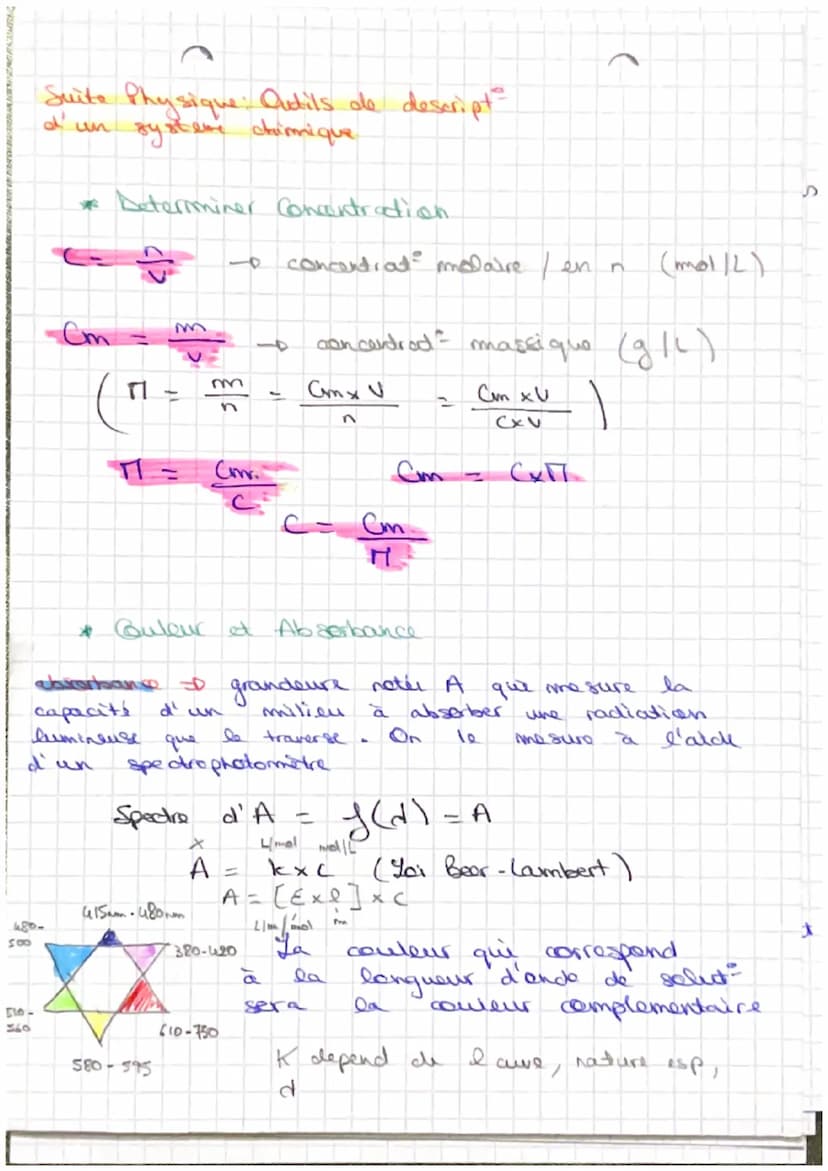 Suite Physique: Outils de descript°
d'un système chimique
* Determiner Concentration
C = n/V → concentrat° molaire / en n (mol/L)
Cm = m/V → concentrat° massique (g/L)
( M = m/n = Cm x V / n = Cm x V / C x V )
M = Cm/C Cm = C x M
C = Cm/M
* Couleur et Absorbance
absorbance → grandeure notée A qui mesure la
capacité d'un milieu à absorber une radiation
lumineuse que le traverse. On le mesure à l'aide
d'un spectrophotomètre
Spectre d'A = f(λ) = A
x L/mol mol/L
A = k x c (Loi Beer-Lambert)
A = [ε x l] x C
415nm - 480nm L/m/mol m
480-500 380-420 La couleur qui correspond
à la longueur d'onde de solut°
510-560 sera la couleur complementaire
610-750
580 - 595 K depend de l cuve, nature esp,
λ